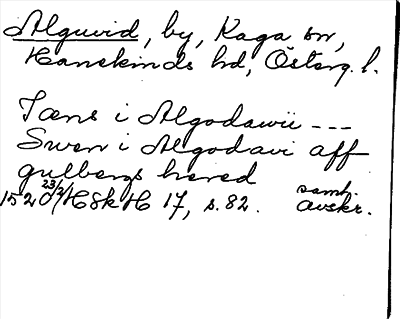 Alguvid, by, Kaga sn,
Hanekinds hd, Österg. l.
Jæns i Algodawii ---
Swen i Algodavi aff
gulbergs hered
1520 23/2 HSkH 17, s. 82. samh. avskr.